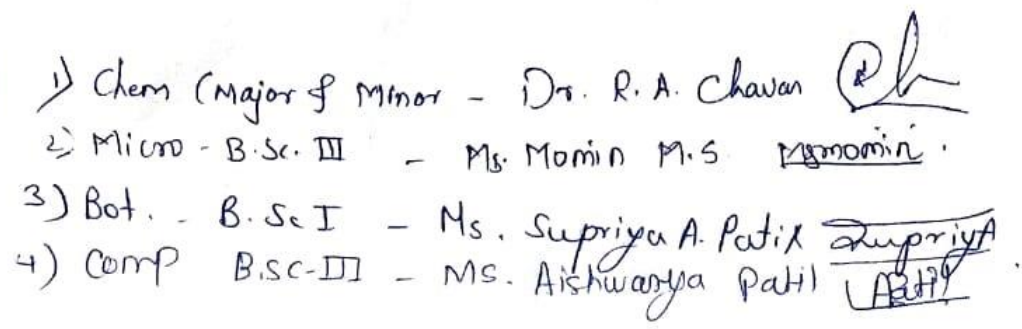 1) Chem (Major & Minor - Dr. R. A. Chavan
2) Micro - B.Sc. III - Ms. Momin M.S Msmomin.
3) Bot. - B.Sc I - Ms. Supriya A. Patil SupriyA
4) Comp B.SC-III - MS. Aishwarya Patil APatil